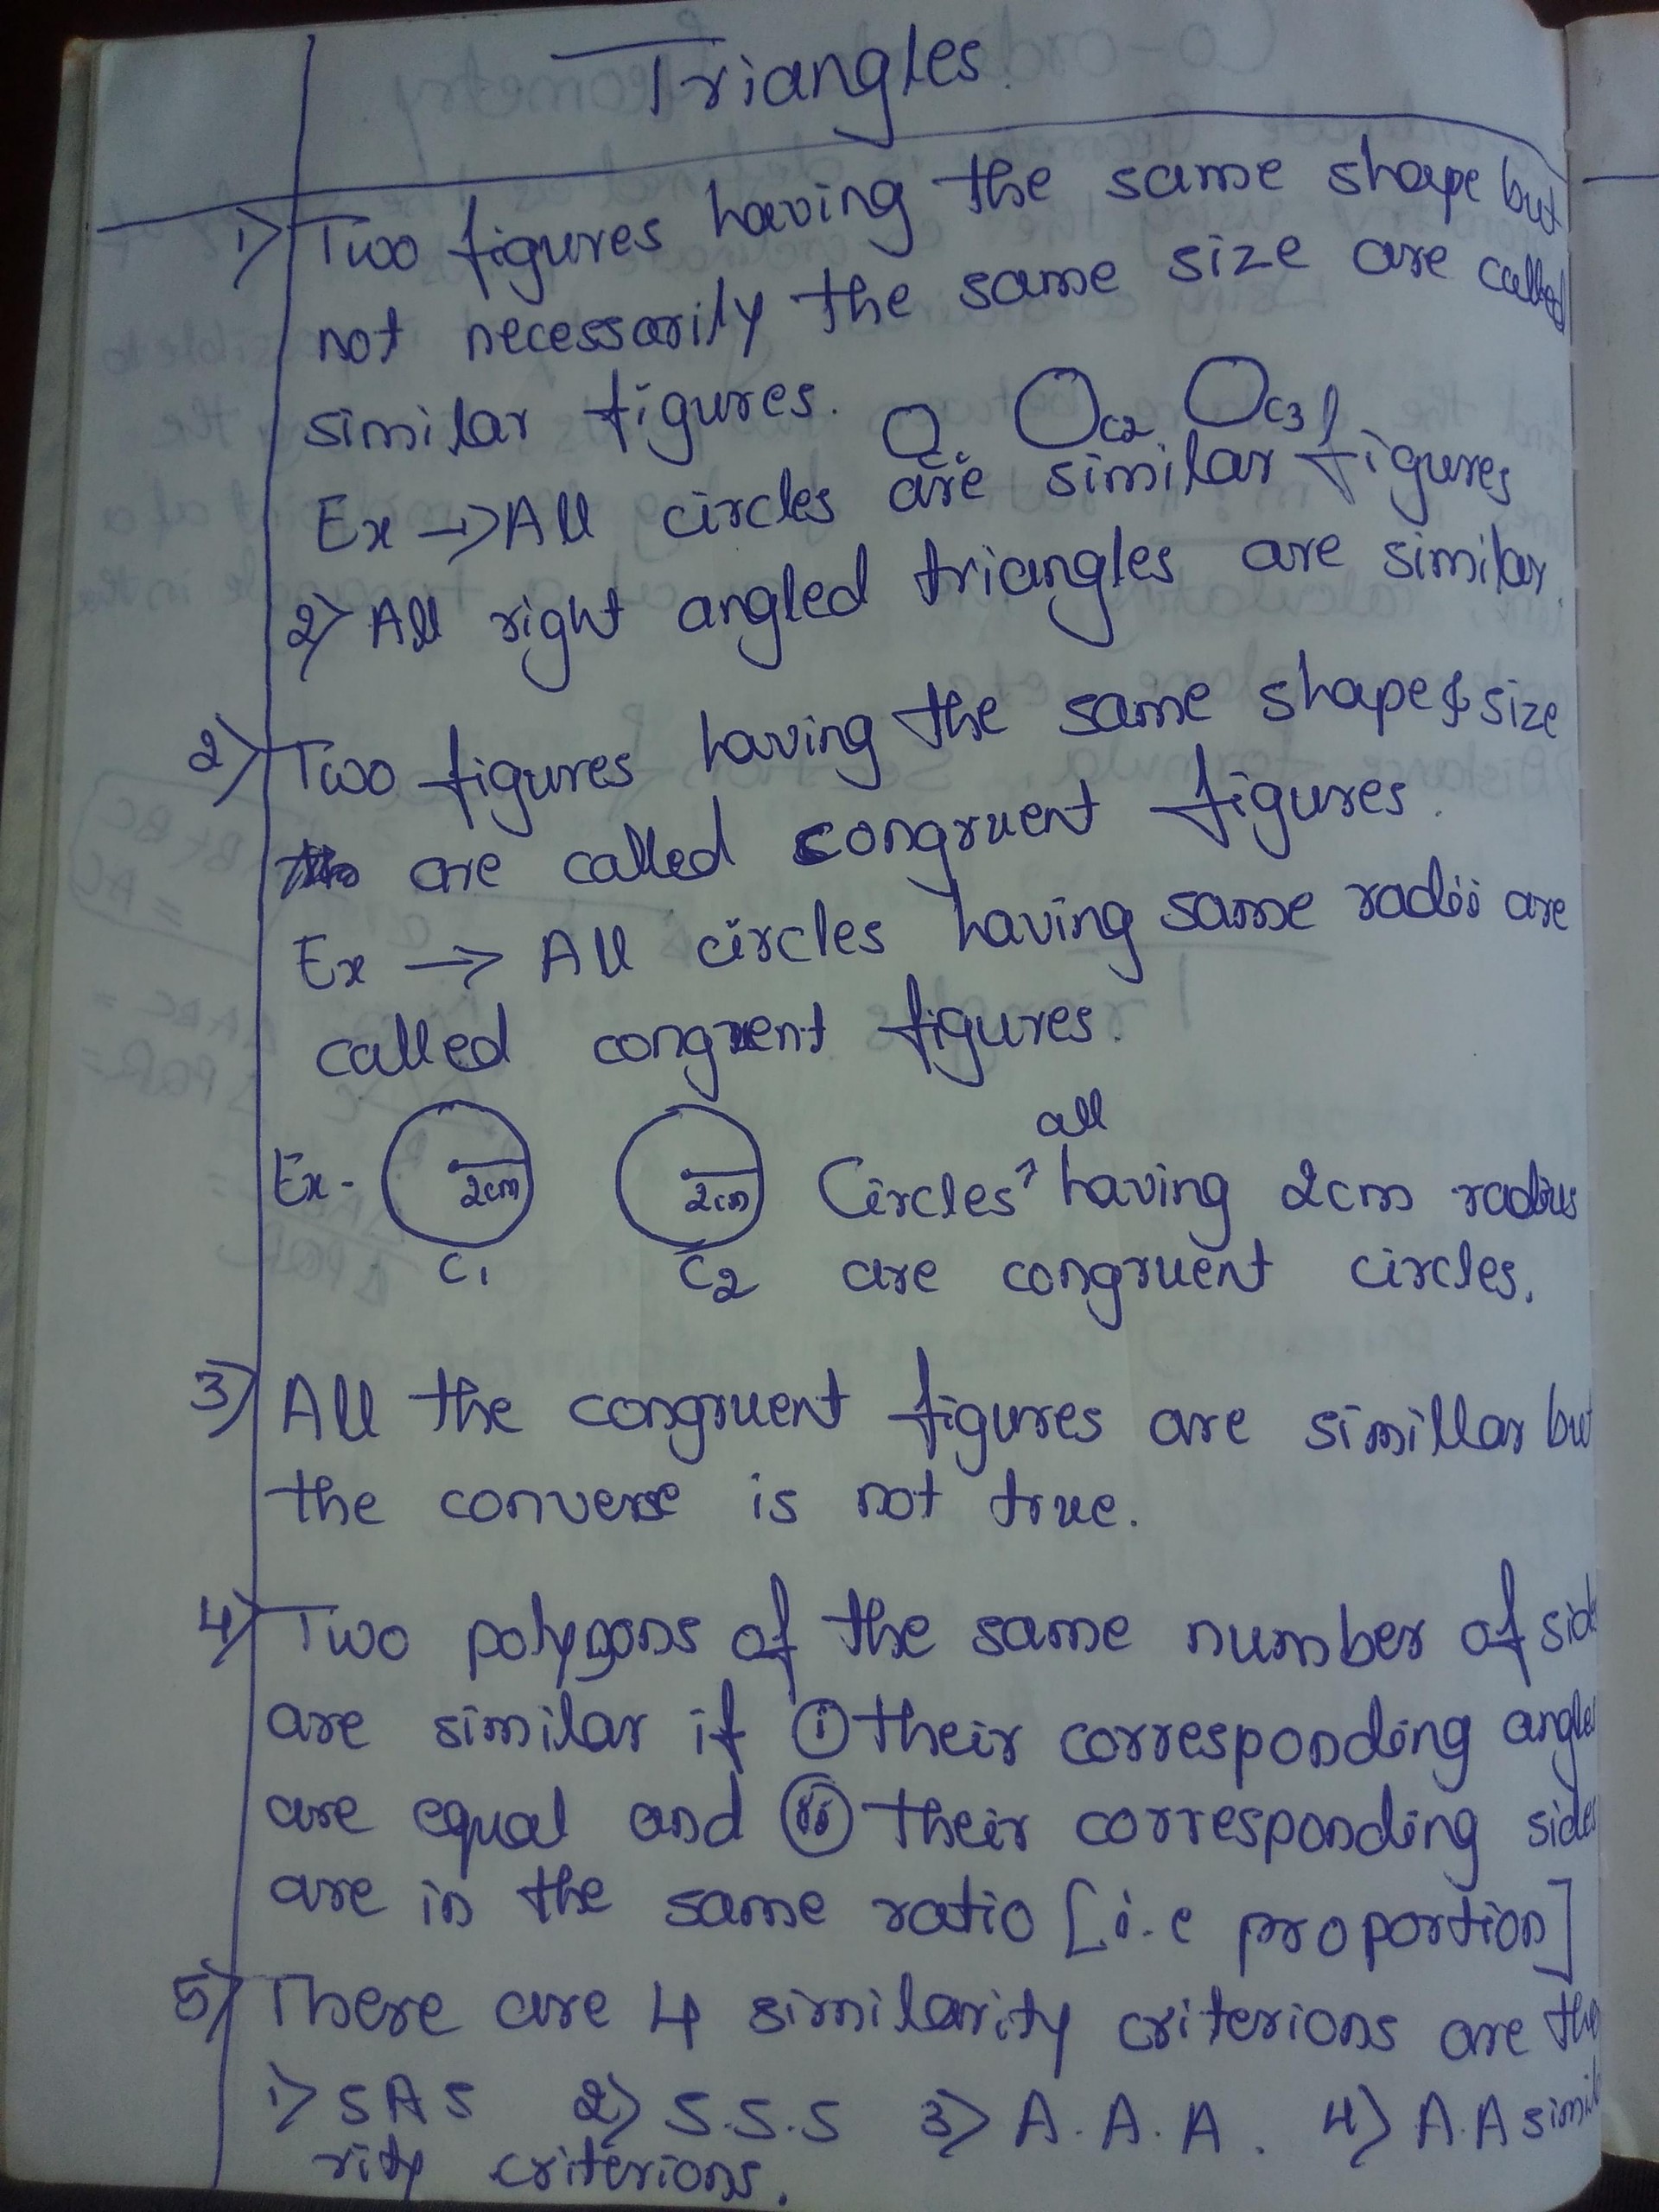 Triangles.
1) Two figures having the same shape but
not necessarily the same size are called
similar figures. C1 C2 C3
Ex → All circles are similar figures
2) All right angled triangles are similar.
2) Two figures having the same shape & size
are called congruent figures.
Ex → All circles having same radii are
called congruent figures.
all
Ex- 2cm 2cm Circles, having 2cm radius
C1 C2 are congruent circles.
3) All the congruent figures are simillar but
the converse is not true.
4) Two polygons of the same number of side
are similar if (i) their corresponding angles
are equal and (ii) their corresponding sides
are in the same ratio [i.e proportion]
5) There are 4 similarity criterions are the
1) SAS 2) S.S.S 3) A.A.A. 4) A.A simila
rity criterions.